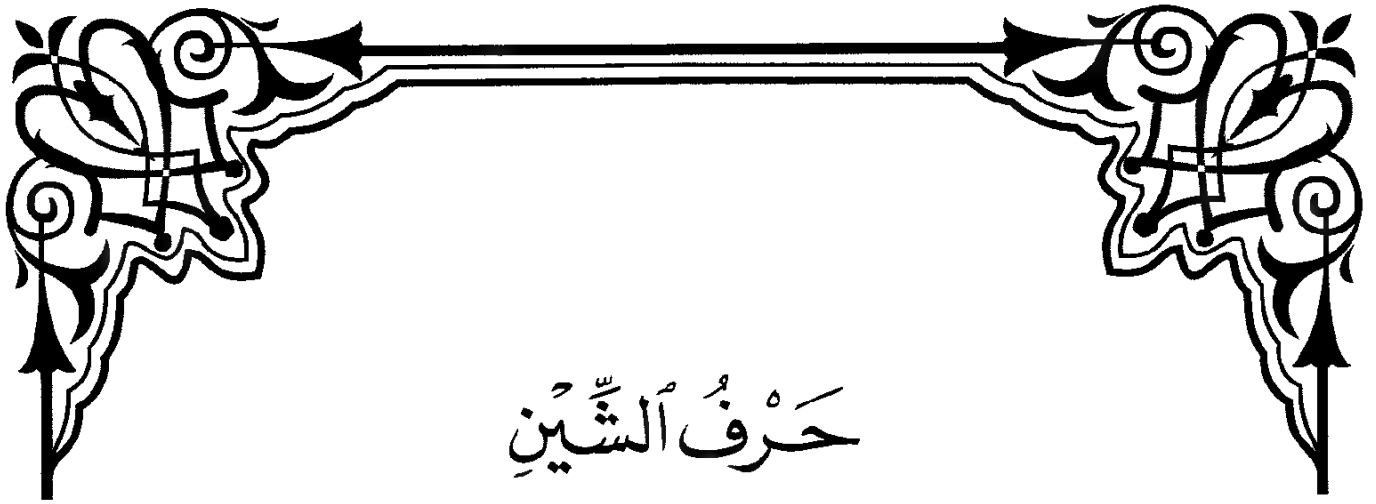 حَرْفُ ٱلشِّيْنِ